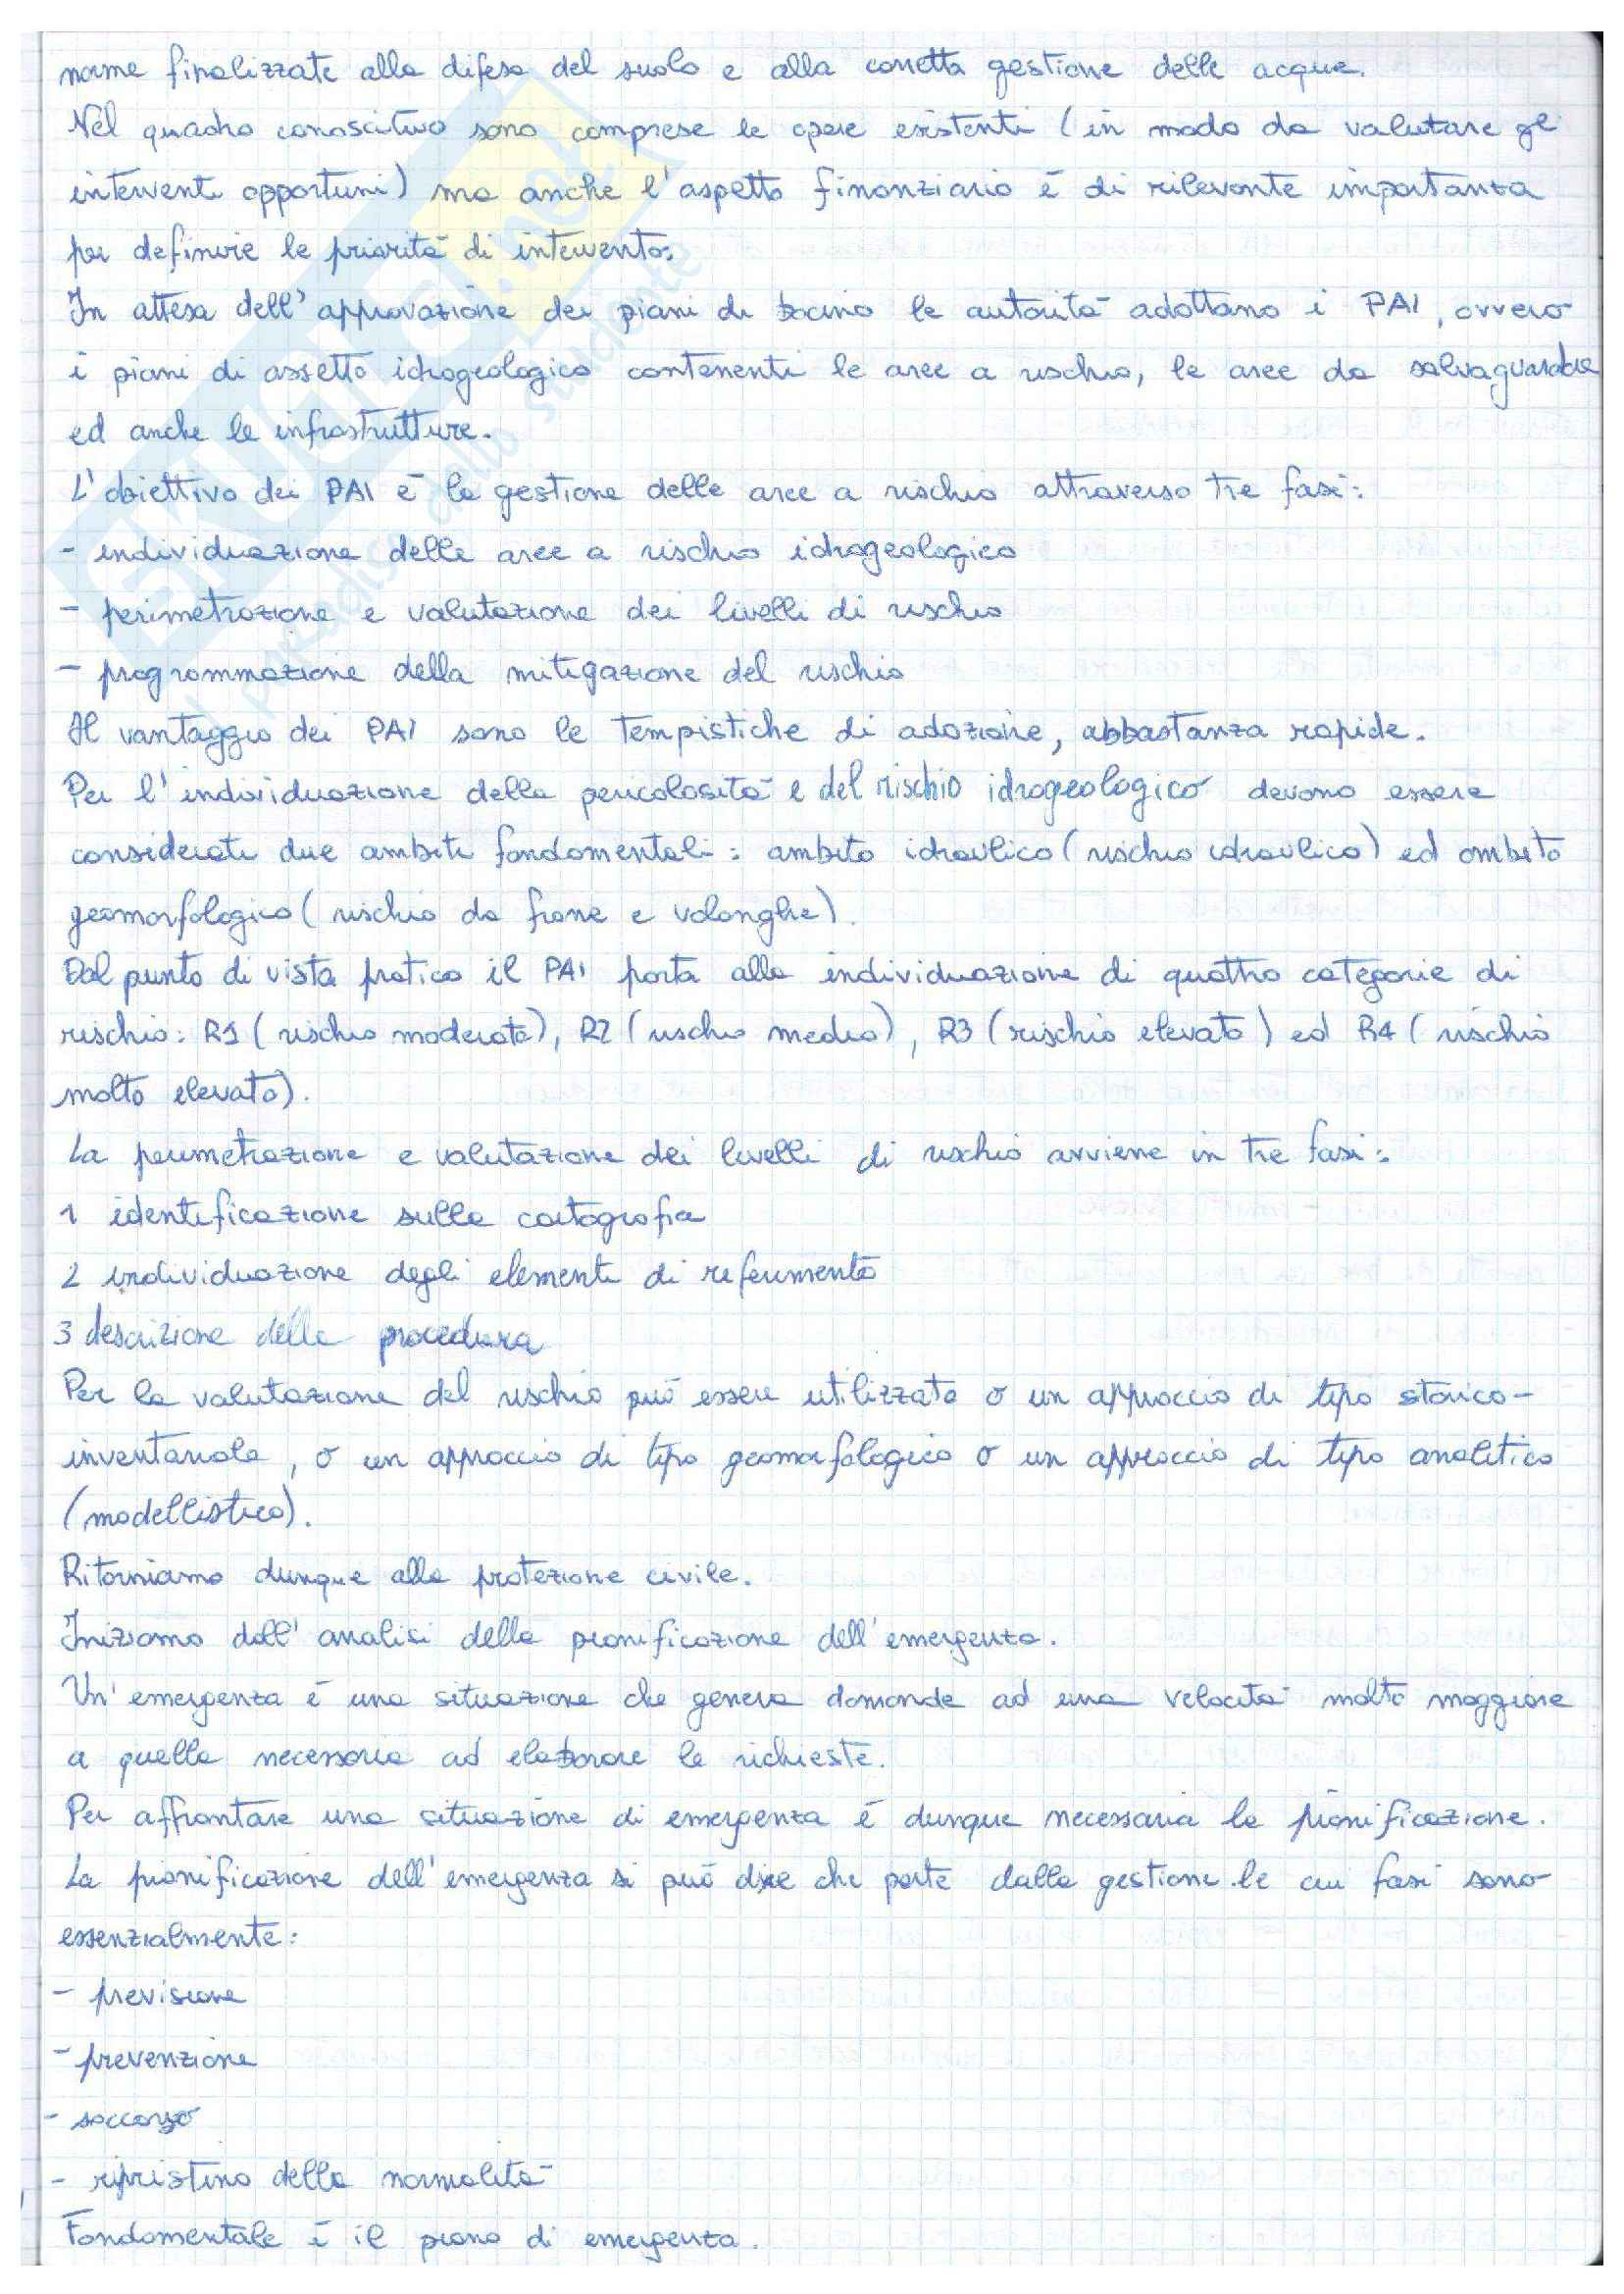 norme finalizzate alla difesa del suolo e alla corretta gestione delle acque.
Nel quadro conoscitivo sono comprese le opere esistenti (in modo da valutare gli
interventi opportuni) ma anche l'aspetto finanziario è di rilevante importanza
per definire le priorità di intervento.
In attesa dell'approvazione dei piani di bacino le autorità adottano i PAI, ovvero
i piani di assetto idrogeologico contenenti le aree a rischio, le aree da salvaguardare
ed anche le infrastrutture.
L'obiettivo dei PAI è la gestione delle aree a rischio attraverso tre fasi:
- individuazione delle aree a rischio idrogeologico
- perimetrazione e valutazione dei livelli di rischio
- programmazione della mitigazione del rischio
Il vantaggio dei PAI sono le tempistiche di adozione, abbastanza rapide.
Per l'individuazione della pericolosità e del rischio idrogeologico devono essere
considerati due ambiti fondamentali: ambito idraulico (rischio idraulico) ed ambito
geomorfologico (rischio da frane e valanghe).
Dal punto di vista pratico il PAI porta alla individuazione di quattro categorie di
rischio: R1 (rischio moderato), R2 (rischio medio), R3 (rischio elevato) ed R4 (rischio
molto elevato).
La perimetrazione e valutazione dei livelli di rischio avviene in tre fasi:
1 identificazione sulla cartografia
2 individuazione degli elementi di riferimento
3 descrizione della procedura
Per la valutazione del rischio può essere utilizzato o un approccio di tipo storico-
inventariale, o un approccio di tipo geomorfologico o un approccio di tipo analitico
(modellistico).
Ritorniamo dunque alla protezione civile.
Iniziamo dall'analisi della pianificazione dell'emergenza.
Un'emergenza è una situazione che genera domande ad una velocità molto maggiore
a quella necessaria ad elaborare le richieste.
Per affrontare una situazione di emergenza è dunque necessaria la pianificazione.
La pianificazione dell'emergenza si può dire che parte dalla gestione le cui fasi sono
essenzialmente:
- previsione
- prevenzione
- soccorso
- ripristino della normalità
Fondamentale è il piano di emergenza.